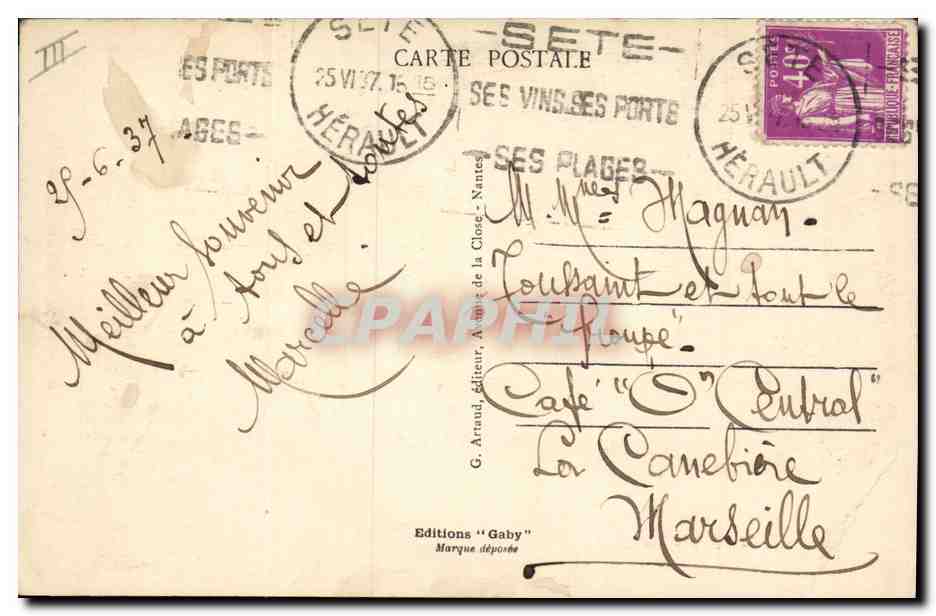 III
CARTE POSTALE
SETE
25 VI 37
HÉRAULT
ES PORTS
AGES
-SETE-
SES VINS.SES PORTS
-SES PLAGES-
SETE
HÉRAULT
SE
POSTES
40c
REPUBLIQUE FRANÇAISE
25-6-37
Meilleur Souvenir
à tous et toutes
Marcelle.
G. Artaud, éditeur, Avenue de la Close - Nantes
M. Mmes Magnan-
Toussaint et tout le
groupe-
Café "O" Central"
La Canebière
Marseille
Editions "Gaby"
Marque déposée
CPAPHIL